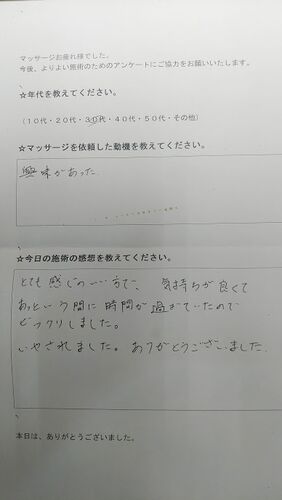 マッサージお疲れ様でした。
今後、よりよい施術のためのアンケートにご協力をお願いいたします。
☆年代を教えてください。
（10代・20代・30代・40代・50代・その他）
☆マッサージを依頼した動機を教えてください。
興味があった
☆今日の施術の感想を教えてください。
とても感じのいい方で、気持ちが良くて
あっという間に時間が過ぎていたので
ビックリしました。
いやされました。ありがとうございました。
本日は、ありがとうございました。